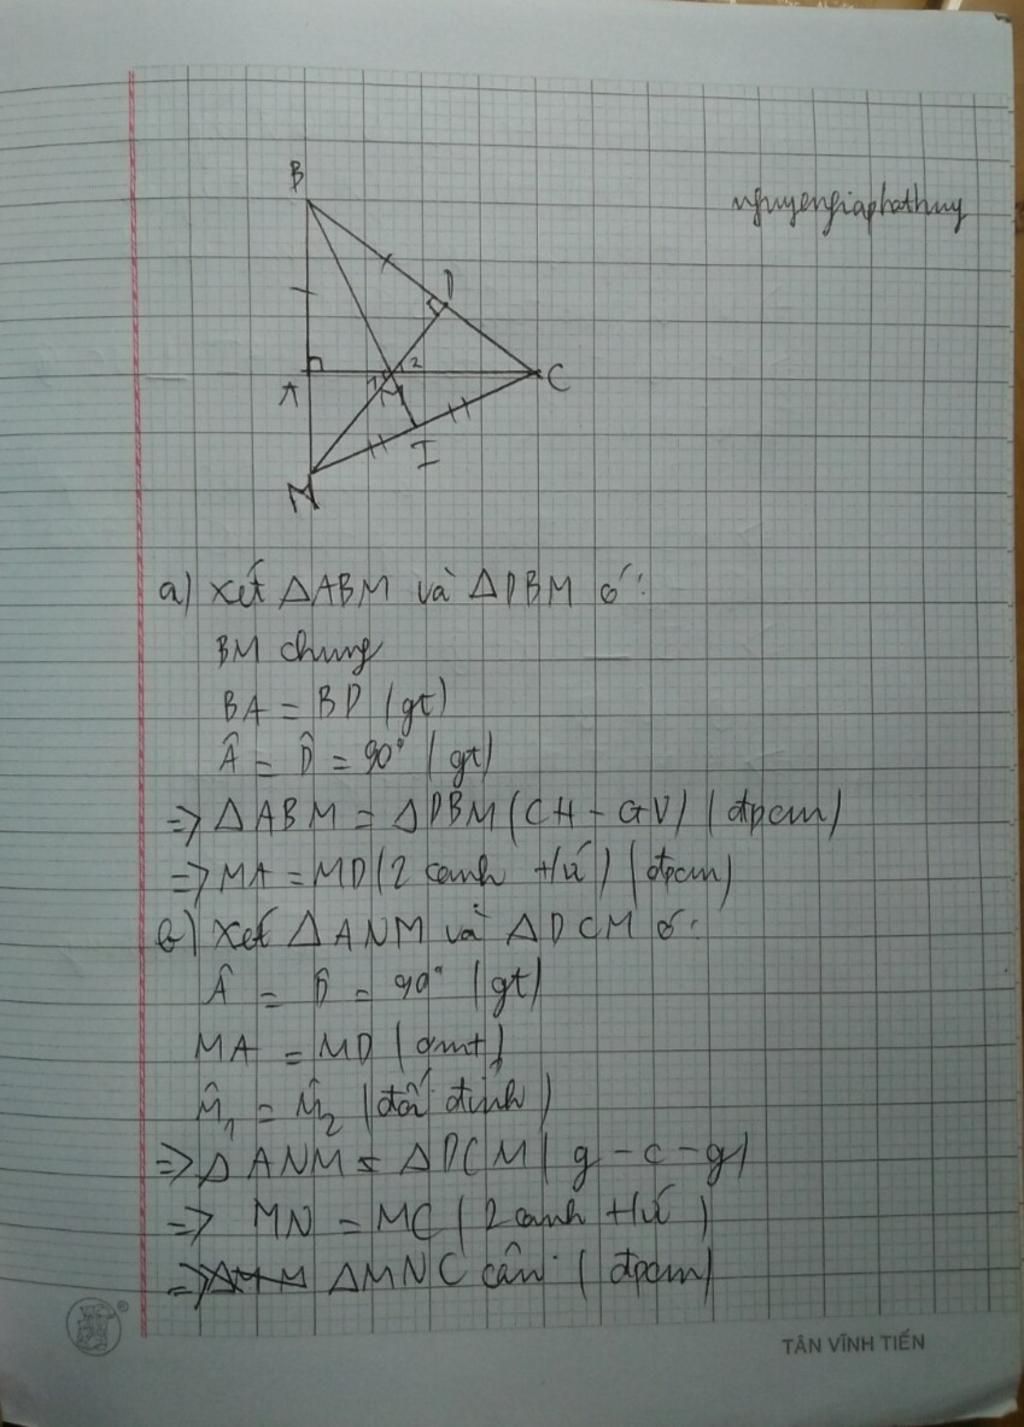 nguyengiaphathuy
B
D
2
A
1
M
C
I
N
a) Xét ΔABM và ΔDBM có:
BM chung
BA = BD (gt)
Â = D̂ = 90° (gt)
=> ΔABM = ΔDBM (CH - GV) (đpcm)
=> MA = MD (2 cạnh t/ứ) (đpcm)
b) Xét ΔANM và ΔDCM có:
Â = D̂ = 90° (gt)
MA = MD (cmt)
M̂₁ = M̂₂ (đối đỉnh)
=> ΔANM = ΔDCM (g - c - g)
=> MN = MC (2 cạnh t/ứ)
=> ΔMNC cân (đpcm)
TÂN VĨNH TIẾN